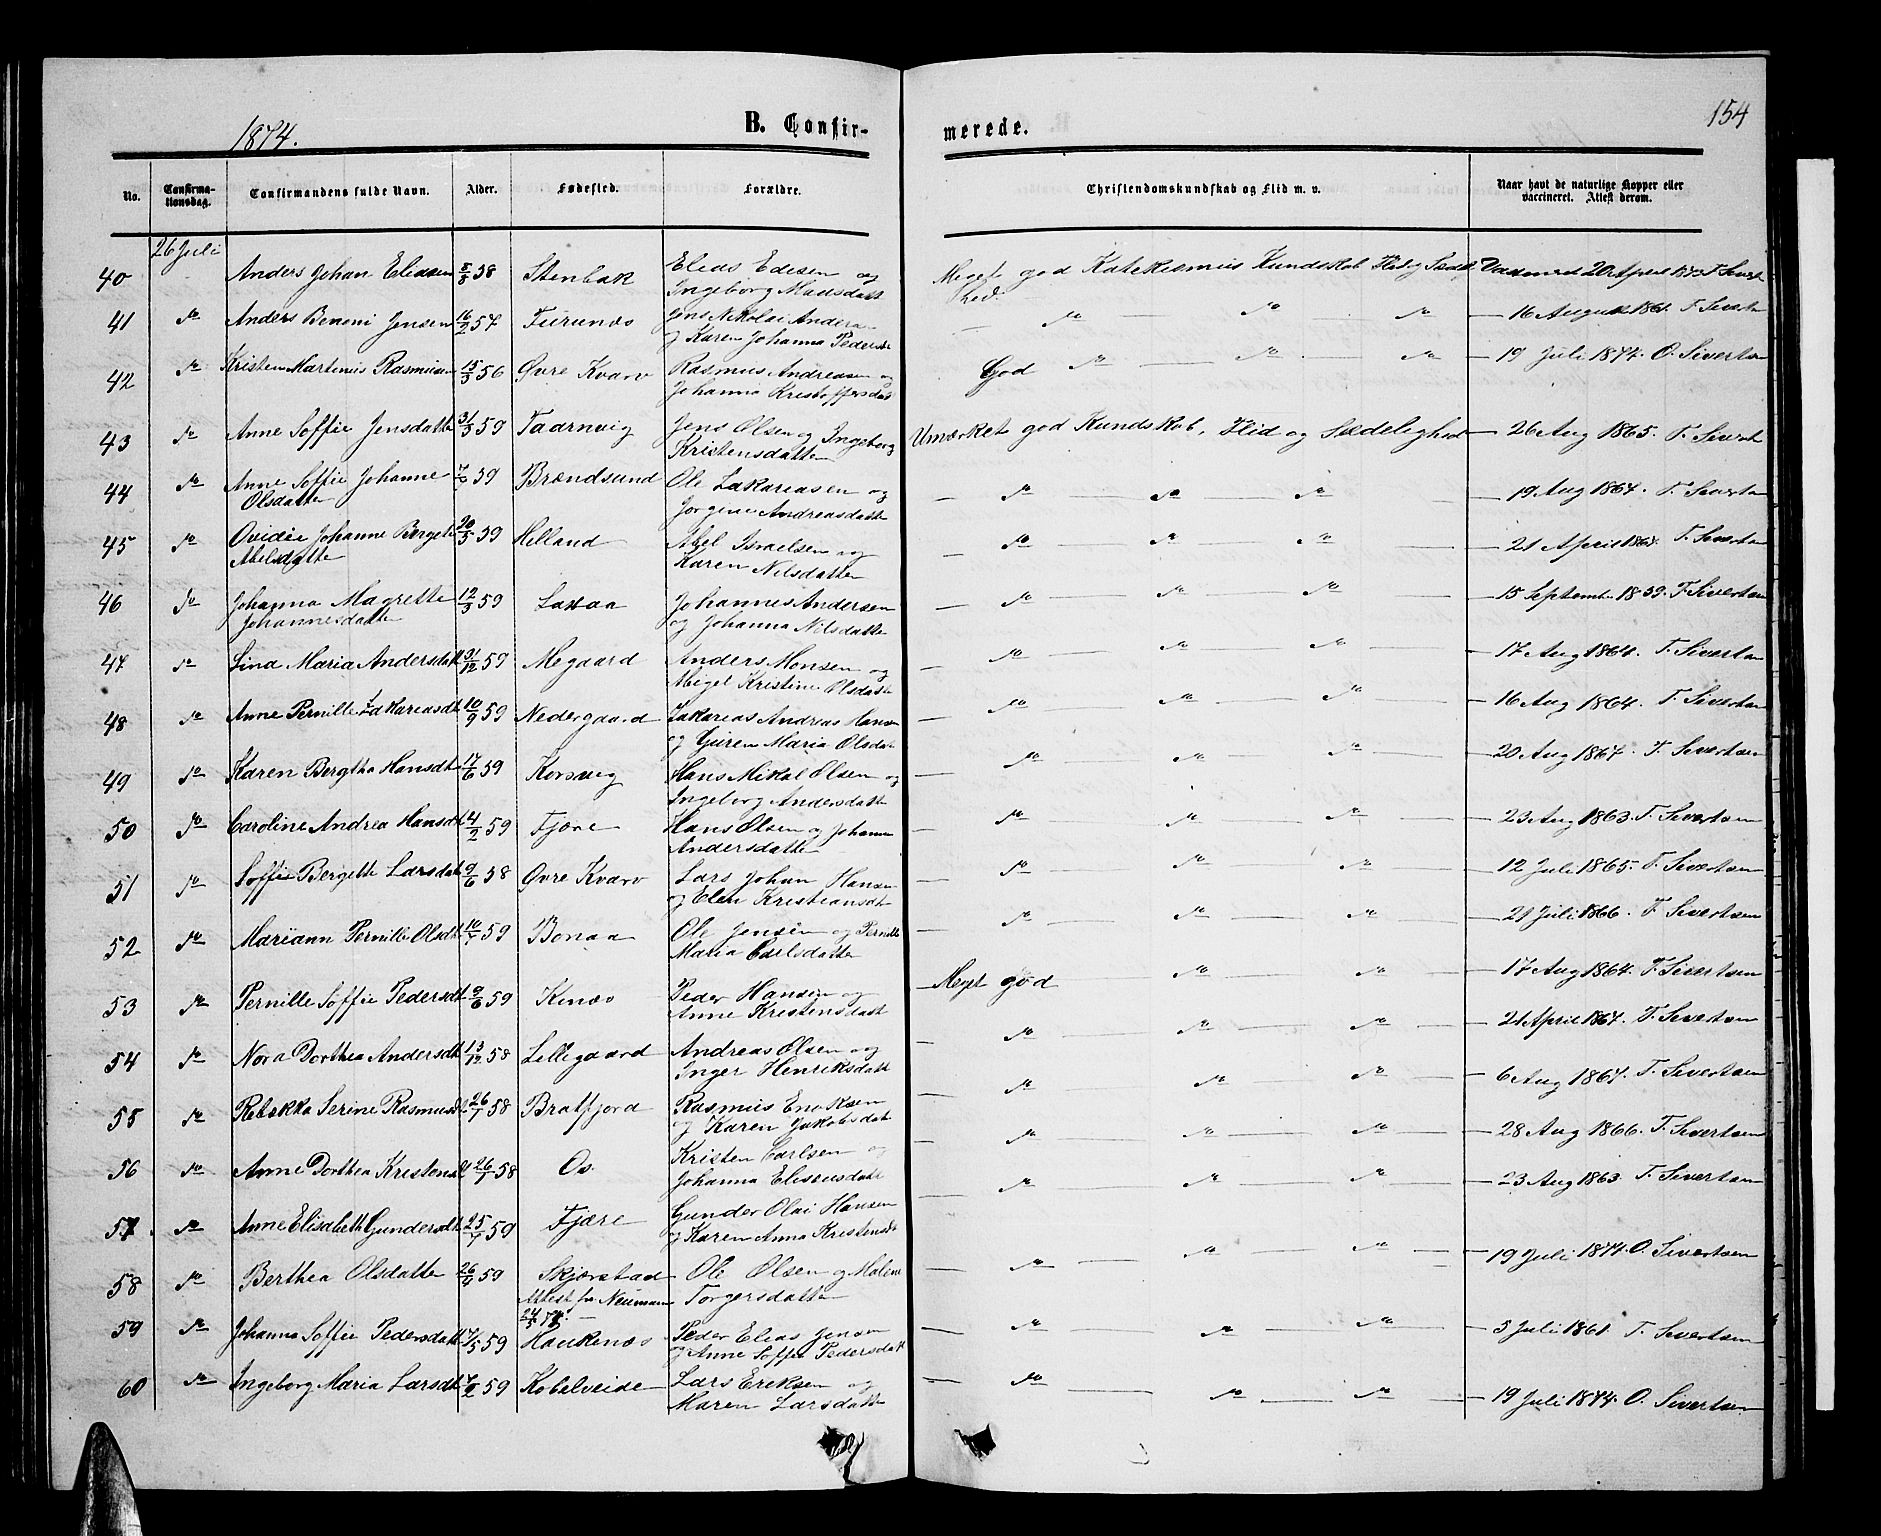 154
1874.
B. Confir-
merede.
No.
Confirma-
tionsdag.
Confirmandens fulde Navn.
Alder.
Fødested.
Forældre.
Christendomskundskab og Flid m. v.
Naar havt de naturlige Kopper eller
vaccineret. Attest derom.
26 Juli
40 Anders Johan Eliassen 58 Stenbak Elias Edisen og
Ingeborg Hansdatt
Meget god Katekismus Kundskab Flid og Sædelig
hed. Vaccineret 20 April
41 do Anders Benoni Jensen 16/2 57 Furunæs Jens Nikolai Anders
og Karen Johanna Peders
— do — do — do — 16 August 1861. T. Sivertsen
42 do Kristen Martenius Rasmusen 15/3 56 Øvre Kvarv Rasmus Andreasen og
Johanna Kristoffersdatt
God do — do — do — 19 Juli 1874. O. Sivertsen
43 do Anne Soffie Jensdatte 31/3 59 Taarnvig Jens Olsen og Ingeborg
Kristensdatte
Umærket god Kundskab, Flid og Sædelighed — 26 Aug 1865. T. Sivert
44 do Anne Soffie Johanne 59 Brændsund Ole Zakariasen og
Olsdatte Jorgine Andreasdatte
— do — do — do — 19 Aug 1864. T. Sivertsen
45 do Ovidie Johanne Bergete 20/5 59 Helland Abel Israelsen og
Abelsdatte Karen Nilsdatte
— do — do — do — 21 April T. Sivertsen
46 do Johanna Magrette 12/3 59 Laxaa Johannes Andersen
Johannesdatte og Johanna Nilsdatte
— do — do — do — 15 Septemb. 1859. T. Sivertsen
47 do Lina Maria Andersdatt 31/12 59 Megaard Anders Monsen og
Abigel Kristine Olsdatte
— do — do — do — 17 Aug 1864. T. Sivertsen
48 do Anne Pernille Zakariasdt 10/9 59 Nedergaard Zakarias Andreas Hansen
og Guren Maria Olsdat
— do — do — do — 16 Aug 1864. T. Sivertsen
49 do Karen Bergtha Hansdt 17/6 59 Korsvig Hans Mikal Olsen og
Ingeborg Andersdatt
— do — do — do — 20 Aug 1864. T. Sivertsen
50 do Caroline Andrea Hansdt 4/2 59 Fjære Hans Olsen og Johanna
Andersdatte
— do — do — do — 23 Aug 1863. T. Sivertsen
51 do Soffie Bergette Larsdat 9/6 58 Øvre Kvarv Lars Johan Hansen
og Elen Kristiansdt
— do — do — do — 12 Juli 1865. T. Sivertsen
52 do Mariann Pernille Olsdt 59 Bonaa Ole Jensen og Pernille
Maria Carlsdatte
— do — do — do — 21 Juli 1866. T. Sivertsen
53 do Pernille Soffie Pedersdt 9/6 59 Kinæs Peder Hansen og
Anne Kristensdatt
Meget god — do — do — 17 Aug 1864. T. Sivertsen
54 do Nora Dorthea Andersdt 13/12 58 Lillegaard Andreas Olsen og
Inger Henriksdatt
do — do — do — 21 April 1864. T. Sivertsen
55 do Rebekka Serine Rasmusdt 26/1 58 Bratfjord Rasmus Enoksen
og Karen Jakobsdat
— do — do — do — 6 Aug 1864. T. Sivertsen
56 do Anne Dorthea Kristensd 26/1 58 Os Kristen Carlsen og
Johanna Eliseusdatt
— do — do — do — 28 Aug 1866. T. Sivertsen
57 do Anne Elisabeth Gundersdt 25/1 59 Fjære Gunder Olai Hansen
og Karen Anna Kristensdt
— do — do — do — 23 Aug 1863. T. Sivertsen
58 do Berthea Olsdatte 26/4 59 Skjærstad Ole Olsen og Malene
Attest fra Neumann Torgersdatte
— do — do — do — 19 Juli 1874. O. Sivertsen
59 do Johanna Soffie Pedersdatt 59 Haukenæs Peder Elias Jensen
og Anne Soffie Pedersdatt
— do — do — do — 3 Juli 1861. T. Sivertsen
60 do Ingeborg Maria Larsdt 59 Kobelveide Lars Eriksen og
Maren Larsdatte
— do — do — do — 19 Juli 1874. O. Sivertsen